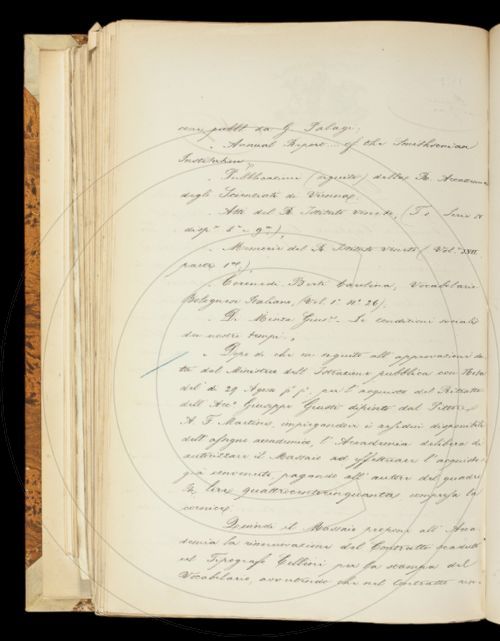 pubbl. da G. Palagi.
. Annual Report ... of the Smithsonian
Institution
. Pubblicazioni (seguito) della R. Accademia
degli Scienziati di Vienna.
. Atti del R. Istituto Veneto, (T. Serie
disp. 8ª e 9ª).
. Memorie del R. Istituto Veneto (Vol. XXII
parte 1ª).
. Coronedi Berti Carolina, Vocabolario
Bolognese Italiano, (Vol. 1º Nº 26).
. Di Menza Gius. Le condizioni sociali
dei nostri tempi.
. Dopo di che in seguito all' approvazione da
ta dal Ministero dell' Istruzione pubblica con Nota
del dì 29 Agosto p. p. per l' acquisto del Ritratto
dell' Acc. Giuseppe Giusti dipinto dal Pittore
A. F. Martini, impiegandovi i
dell' accademico, l' Accademia delibera di
autorizzare il Massaio ad effettuare l' acquisto
già convenuto, pagando all' autore del quadro
lire quattrocentocinquanta compresa la
cornice.
Quindi il Massaio propone all' Acca
demia la rinnovazione del Contratto scaduto
col Tipografo Cellini per la stampa del
Vocabolario, avvertendo che nel Contratto